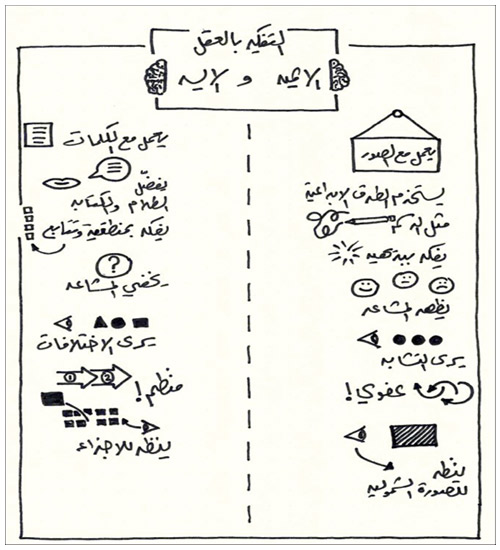 التفكير بالعقل
الايمن و الايسر
يعمل مع الصور
يستخدم الطرق الابداعية
مثل الرسم
يفكر ببديهية
يظهر المشاعر
يرى التشابه
عفوي!
ينظر
للصورة الشمولية
يعمل مع الكلمات
يفضّل
الكلام والكتابة
يفكر بمنطقية وتتابع
?
يخفي المشاعر
يرى الاختلافات
1 2 منظم!
ينظر للاجزاء